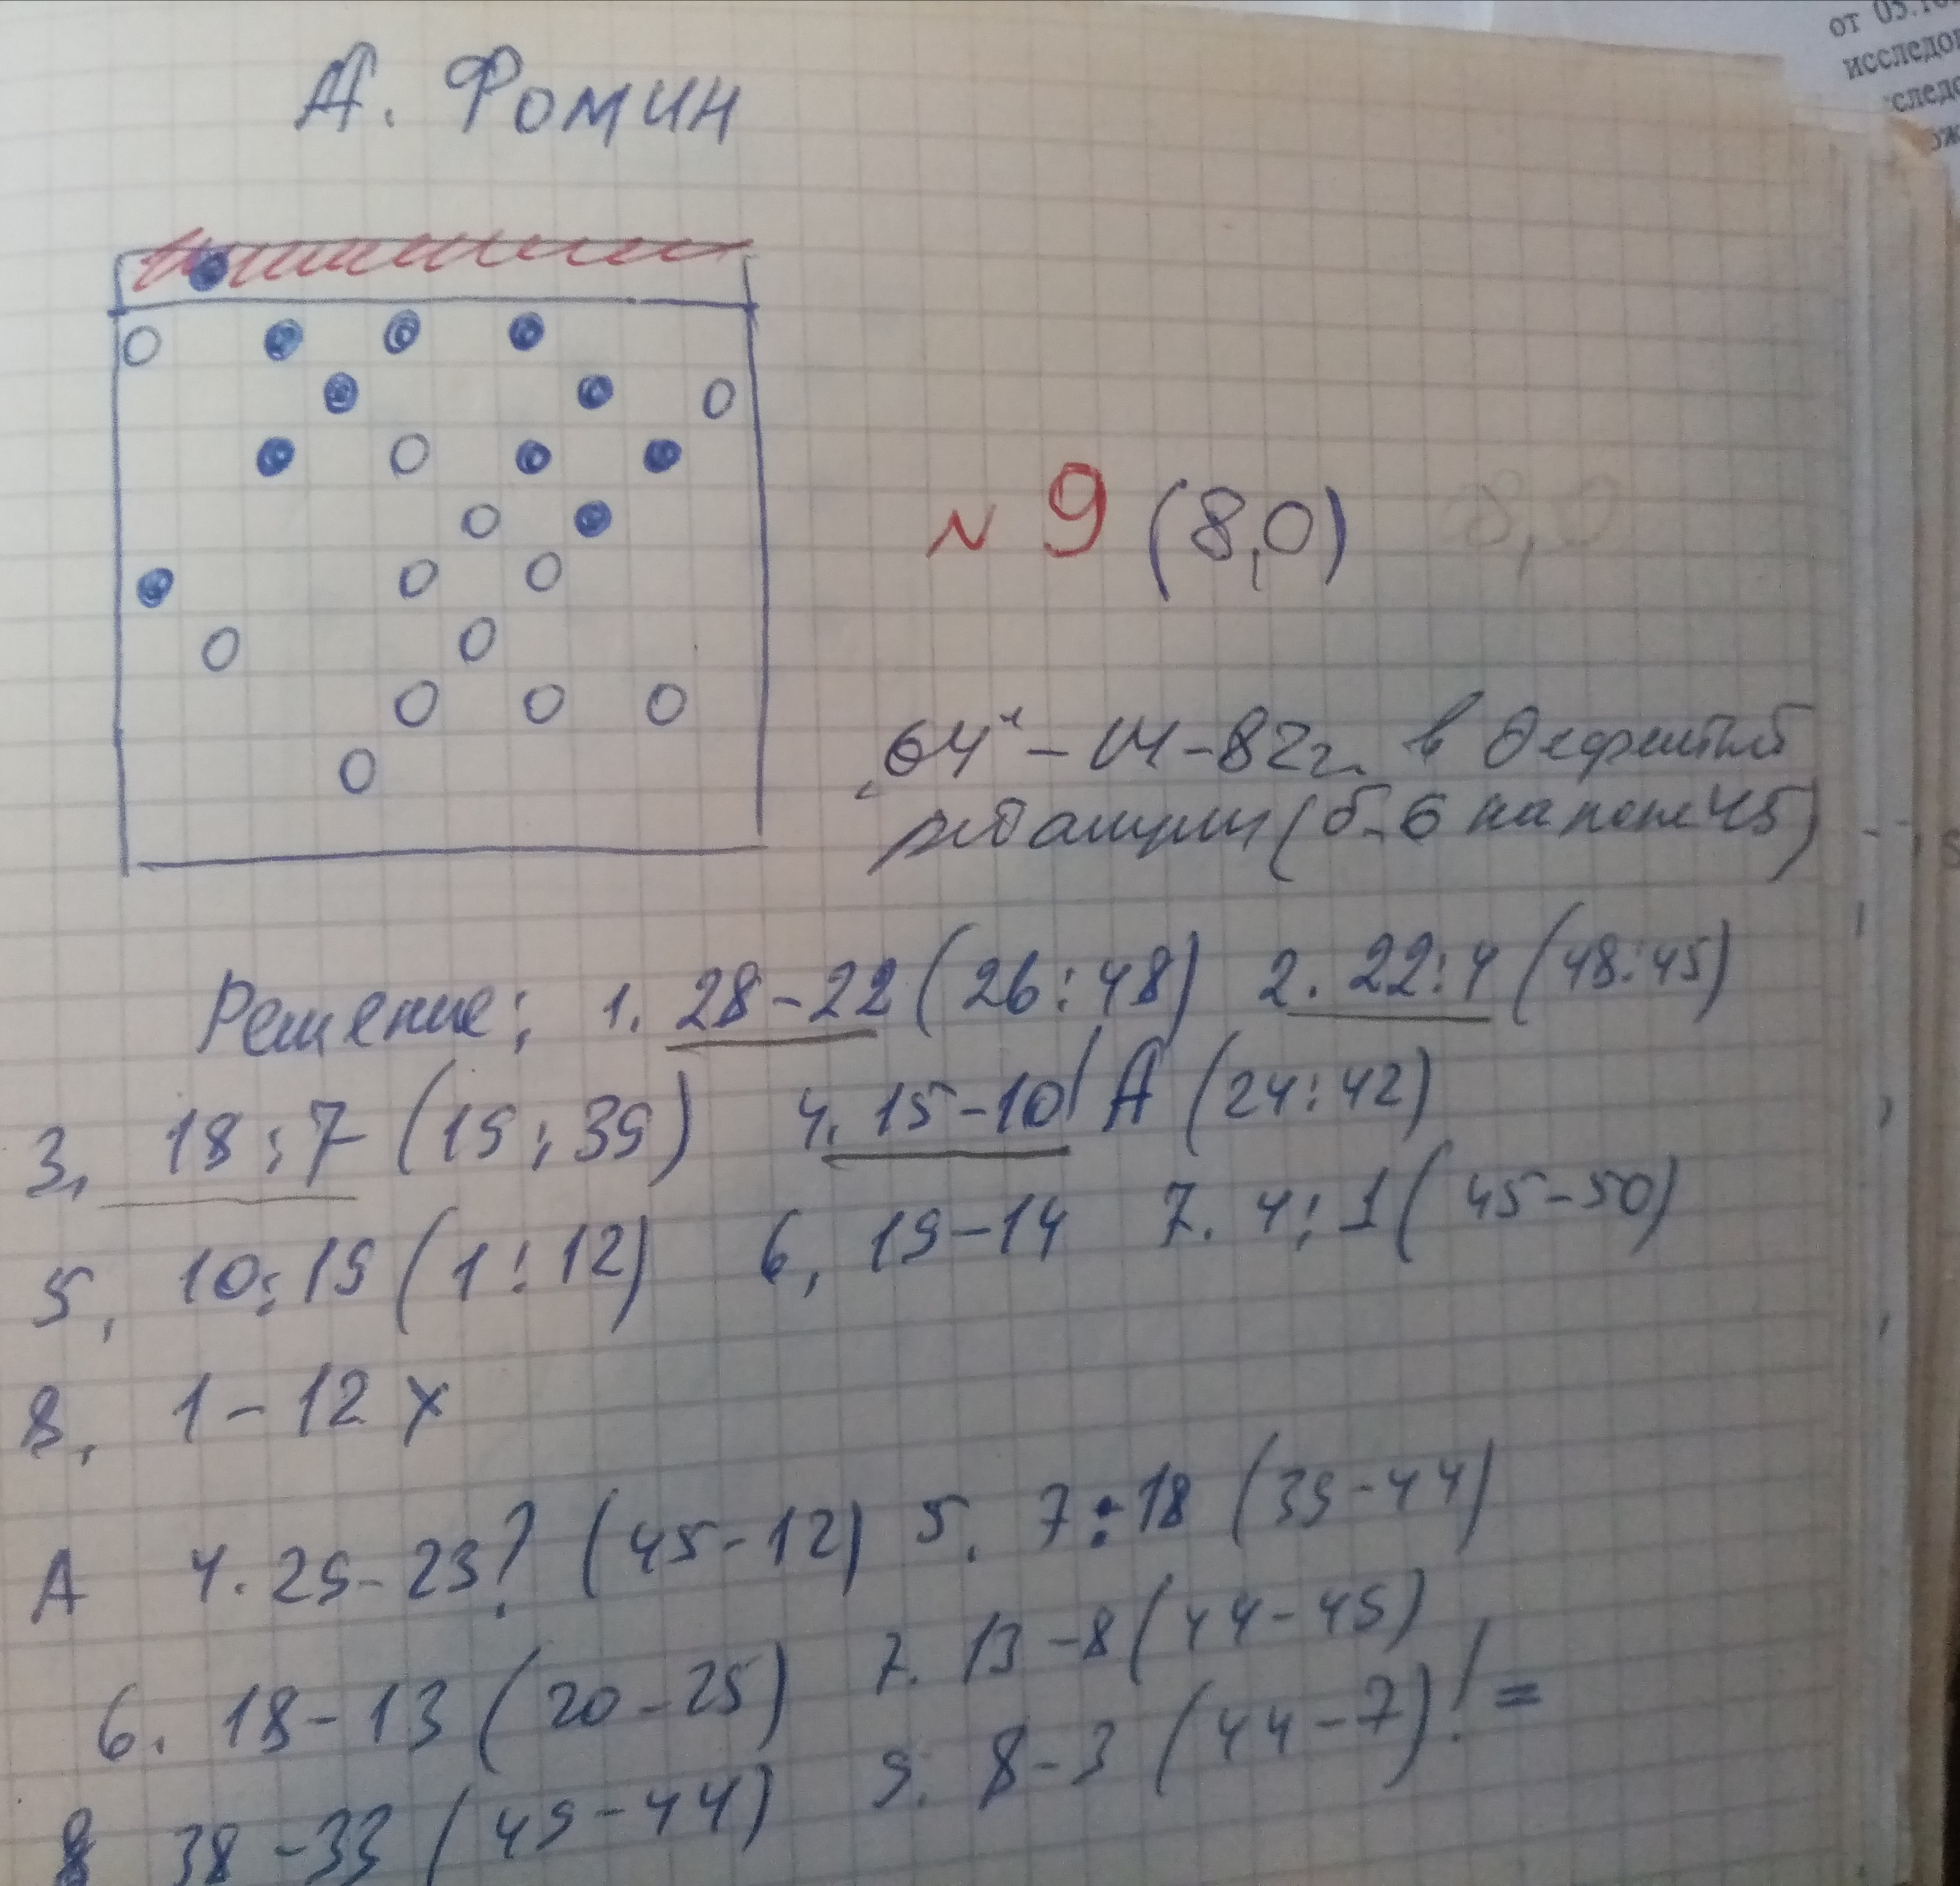 от 05.10
исследов
следо
А. Фомин
№ 9 (8,0) 8,0
"64" – 14-82г. в дефектной
редакции (б. 6 на поле 45)
Решение: 1. 28-22 (26:48) 2. 22:4 (48:45)
3. 18:7 (19:39) 4. 15-10! А (24:42)
5. 10:19 (1:12) 6. 19-14 7. 4:1 (45-50)
8. 1-12 х
А 4. 29-23? (45-12) 5. 7:18 (39-44)
6. 18-13 (20-25) 7. 13-8 (44-49)
8 38-33 (49-44) 9. 8-3 (44-7)! =